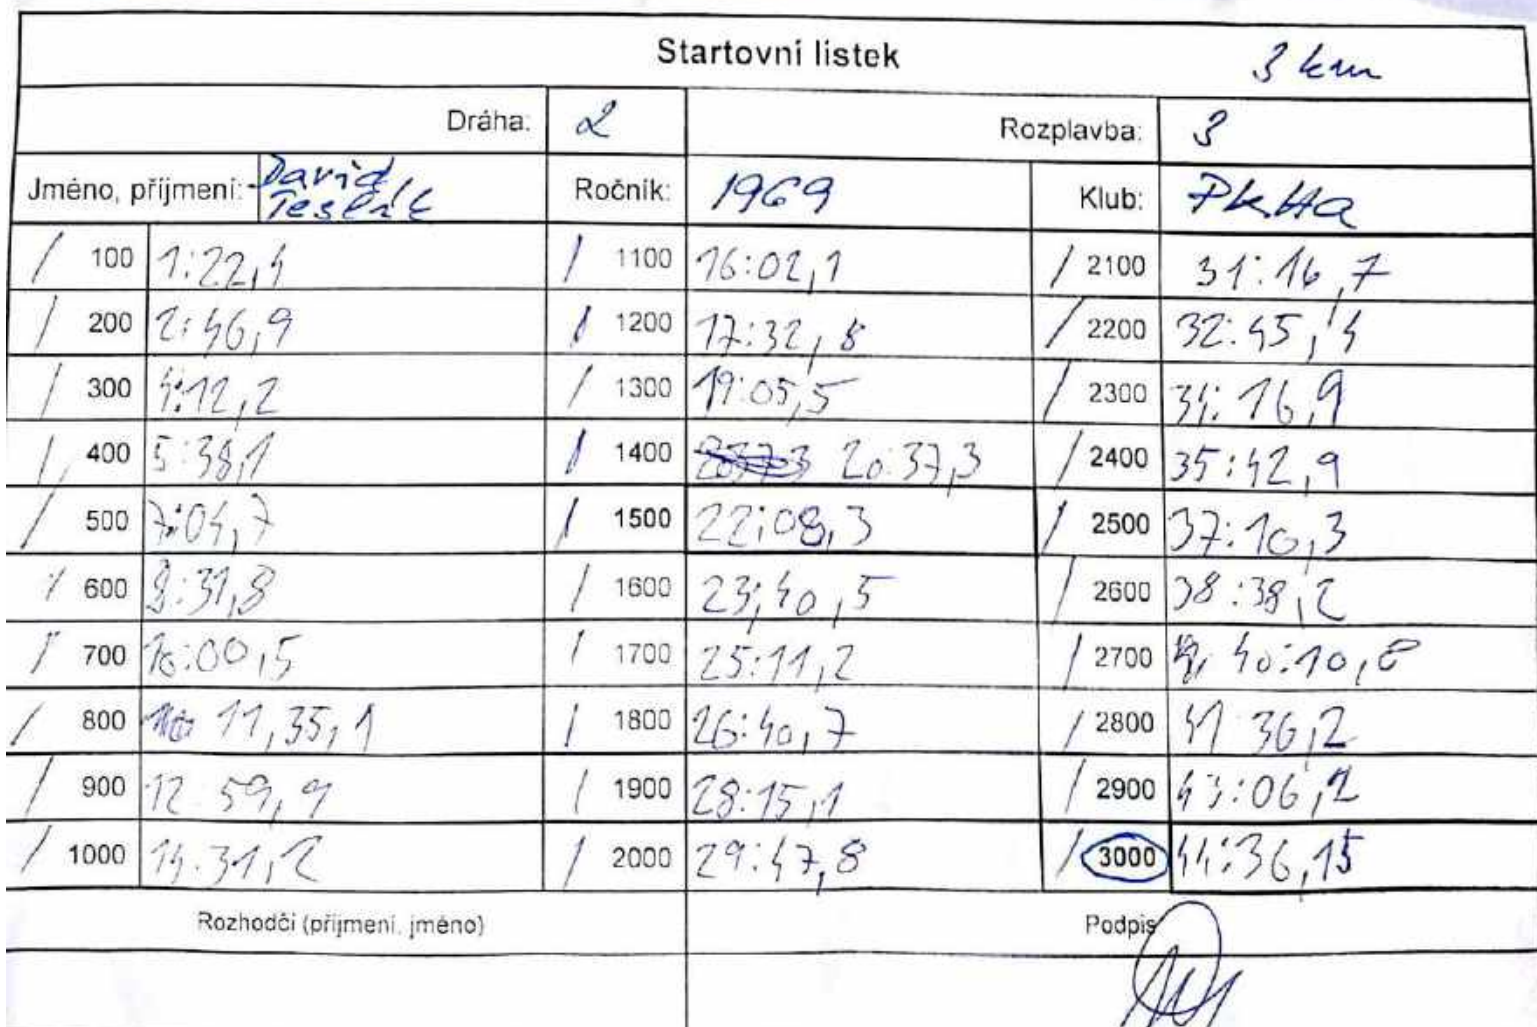 Startovní lístek 3 km
Dráha: 2 Rozplavba: 3
Jméno, příjmení: David Ročník: 1969 Klub: PKHa
/ 100 1:22,4 / 1100 16:02,1 / 2100 31:16,7
/ 200 2:46,9 / 1200 17:32,8 / 2200 32:45,4
/ 300 4:12,2 / 1300 19:05,5 / 2300 34:16,9
/ 400 5:38,1 / 1400 20:37,3 / 2400 35:42,9
/ 500 7:04,7 / 1500 22:08,3 / 2500 37:10,3
/ 600 8:31,8 / 1600 23:40,5 / 2600 38:38,2
/ 700 10:00,5 / 1700 25:11,2 / 2700 40:10,8
/ 800 11,35,1 / 1800 26:40,7 / 2800 41 36,2
/ 900 12:59,9 / 1900 28:15,1 / 2900 43:06,2
/ 1000 14:31,2 / 2000 29:47,8 / 3000 44:36,15
Rozhodčí (příjmení, jméno) Podpis